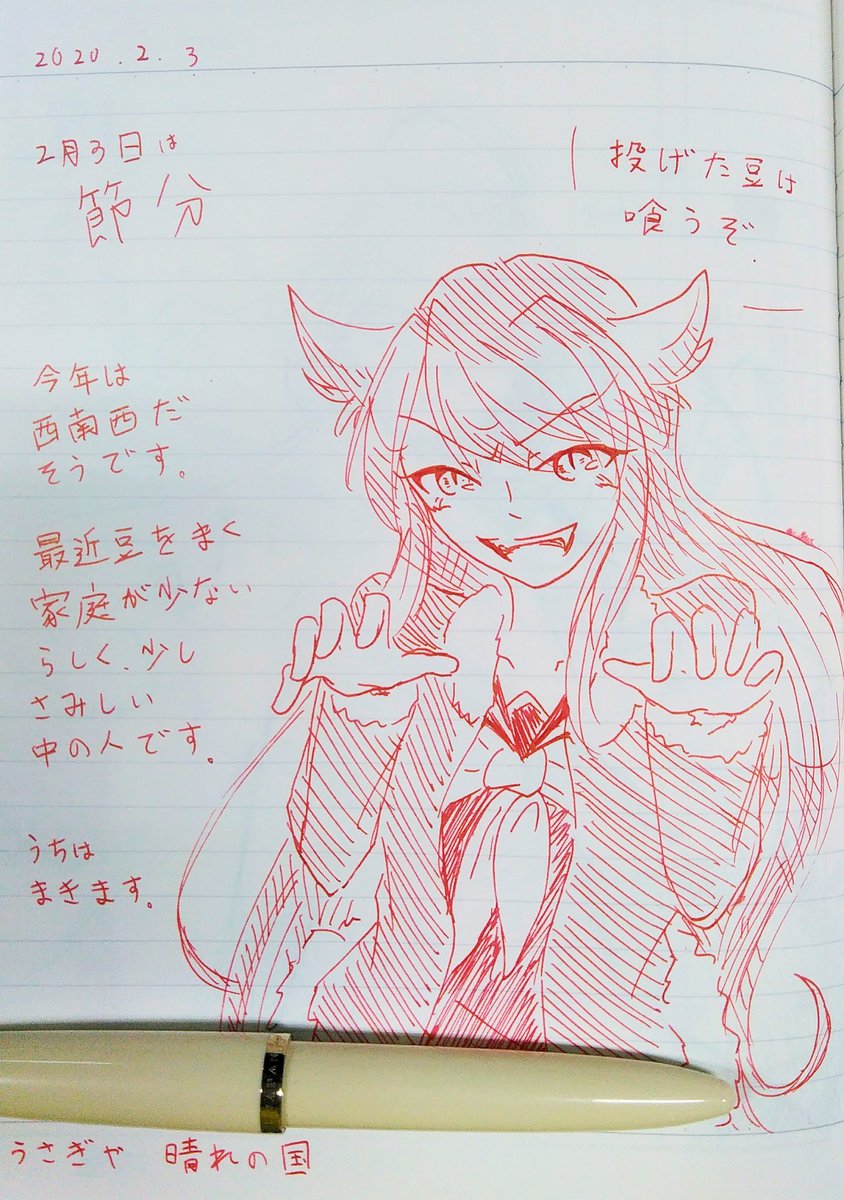 2020.2.3
2月3日は
節分
投げた豆は
喰うぞ.
今年は
西南西だ
そうです。
最近豆をまく
家庭が少ない
らしく、少し
さみしい
中の人です。
うちは
まきます。
うさぎや 晴れの国